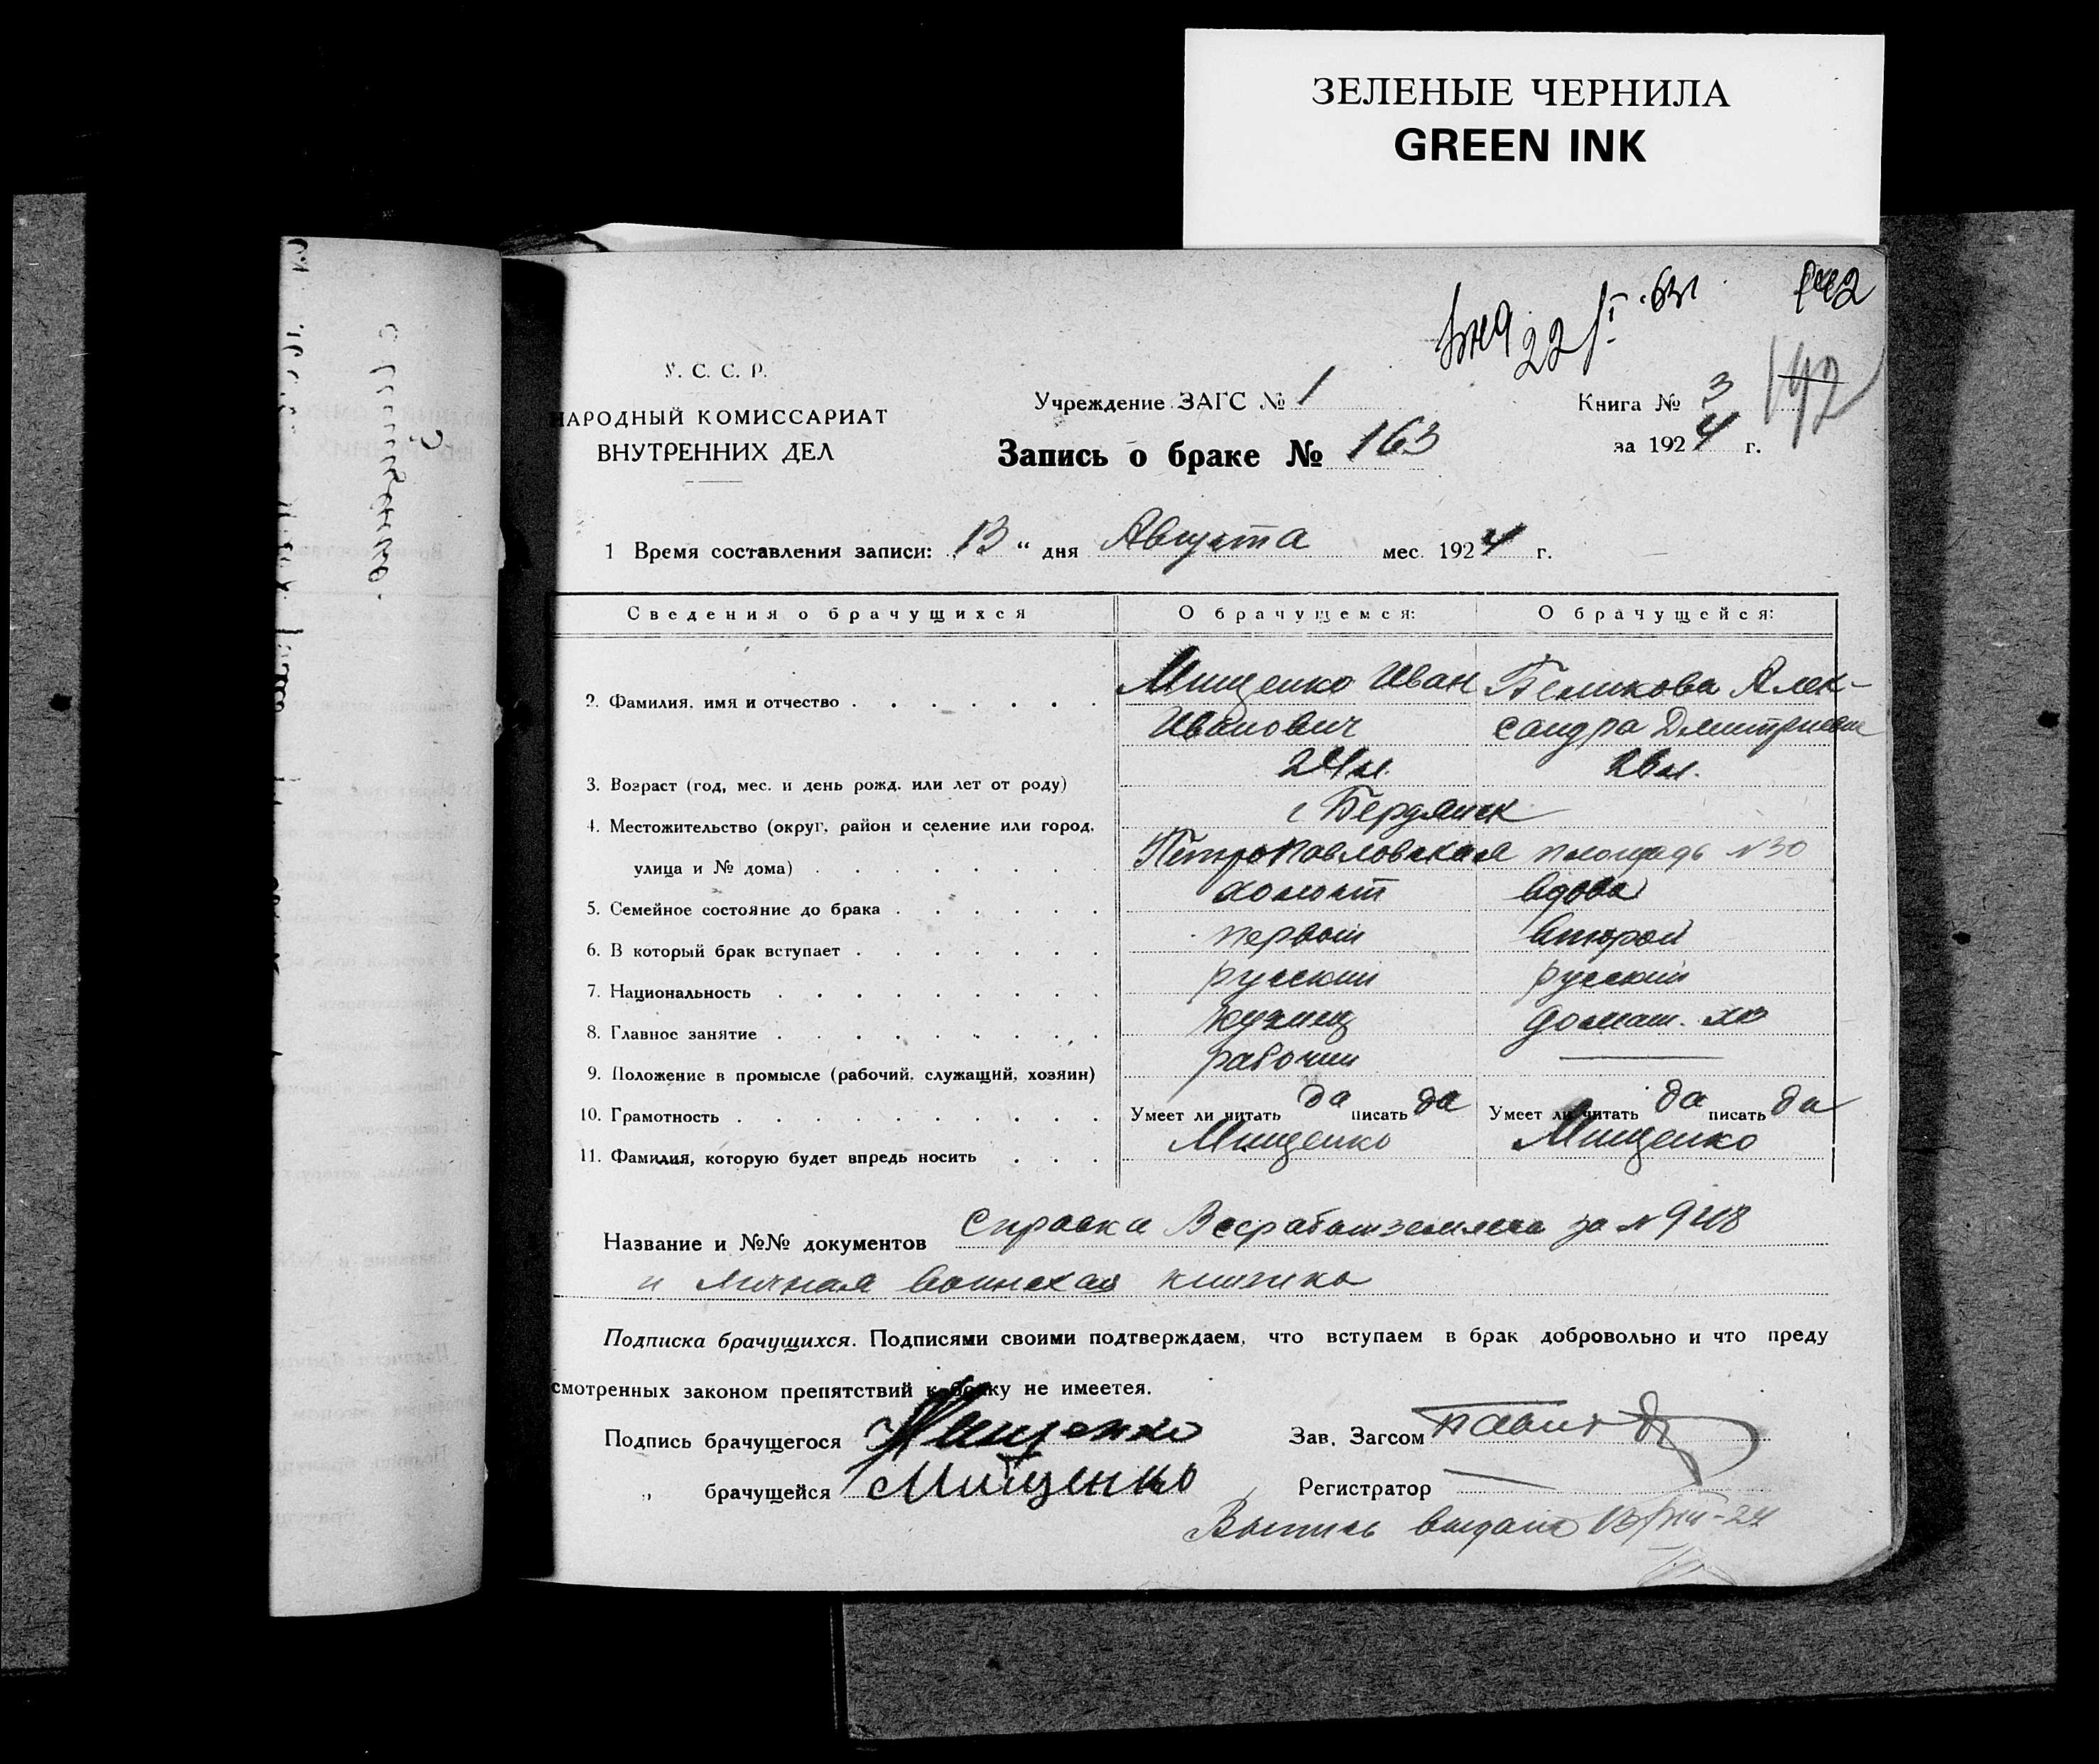 ЗЕЛЕНЫЕ ЧЕРНИЛА
GREEN INK
192
У. С. С. Р.
НАРОДНЫЙ КОМИССАРИАТ
ВНУТРЕННИХ ДЕЛ
Учреждение ЗАГС № 1
Книга № 3
за 1924 г.
Запись о браке № 163
1 Время составления записи: 13 “ дня Августа мес. 1924 г.
Сведения о брачущихся О брачущемся: О брачущейся:
2. Фамилия, имя и отчество Мищенко Иван Беликова Алек-
Иванович сандра Дмитриевна
3. Возраст (год, мес. и день рожд. или лет от роду) 24 л. 26 л.
4. Местожительство (округ, район и селение или город, г. Бердянск
улица и № дома) Петропавловская площадь № 30
5. Семейное состояние до брака холост вдова
6. В который брак вступает первый второй
7. Национальность русский русский
8. Главное занятие кузнец домаш. хоз
9. Положение в промысле (рабочий, служащий, хозяин) рабочий —
10. Грамотность Умеет ли читать да писать да Умеет ли читать да писать да
11. Фамилия, которую будет впредь носить Мищенко Мищенко
Название и №№ документов Справка Всерабатземлеса за № 948
и личная воинская книжка
Подписка брачущихся. Подписями своими подтверждаем, что вступаем в брак добровольно и что преду
смотренных законом препятствий к браку не имеется.
Подпись брачущегося Мищенко Зав. Загсом
„ брачущейся Мищенко Регистратор —
Выпись выдана 13/VIII-24